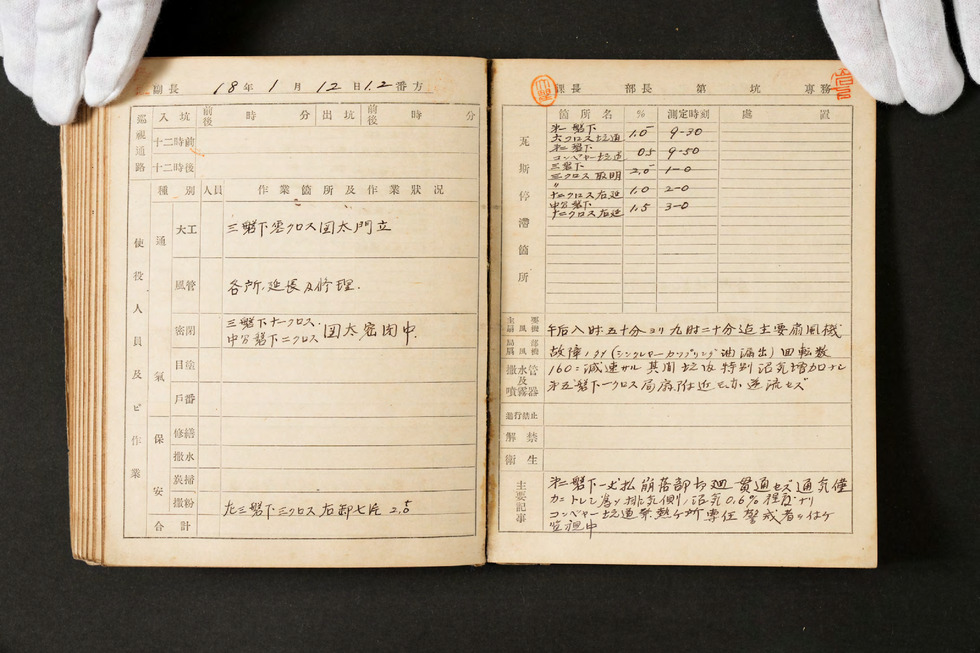 副長 18年 1月 12日 1.2番方
巡視通路 入坑 前後 時 分 出坑 前後 時 分
十二時前
十二時後
種別 人員 作業箇所及作業狀況
使役人員及ビ作業
通氣
大工 三盤下零クロス囯太門立
風管 各所、延長及修理.
密閉 三盤下十一クロス.
中分盤下ニクロス 囯太密閉中.
目塗
戶番
保安
修繕
撒水
炭掃
撒粉 左三盤下三クロス右卸七片 2.5
合計
課長 部長 第 坑 專務
瓦斯停滯箇所
箇所名 % 測定時刻 處置
第一盤下
六クロス坑道 1.0 9-30
第二盤下
コンベヤー坑道 0.5 9-50
三盤下
三クロス 2.0 1-0
〃
十二クロス右延 1.0 2-0
中分盤下
十二クロス右延 1.5 3-0
主要扇風機 午后八時五十分ヨリ九時二十分迄主要扇風機
局部扇風機 故障ノタメ(シンクレヤーカップリング油漏出)回転数
撒水管及噴霧器 160ニ減速サル 其間坑内特別沼気増加ナシ
第五盤下一クロス局扇附近モ亦逆流セズ
進行禁止
解禁
衞生
主要記事
第二盤下一丈払崩落部 貫通セズ通気僅
カニトレテ居リ排気側ノ沼気0.6%程度ナリ
コンベヤー坑道発熱ヶ所専任警戒者ヲ付ケ